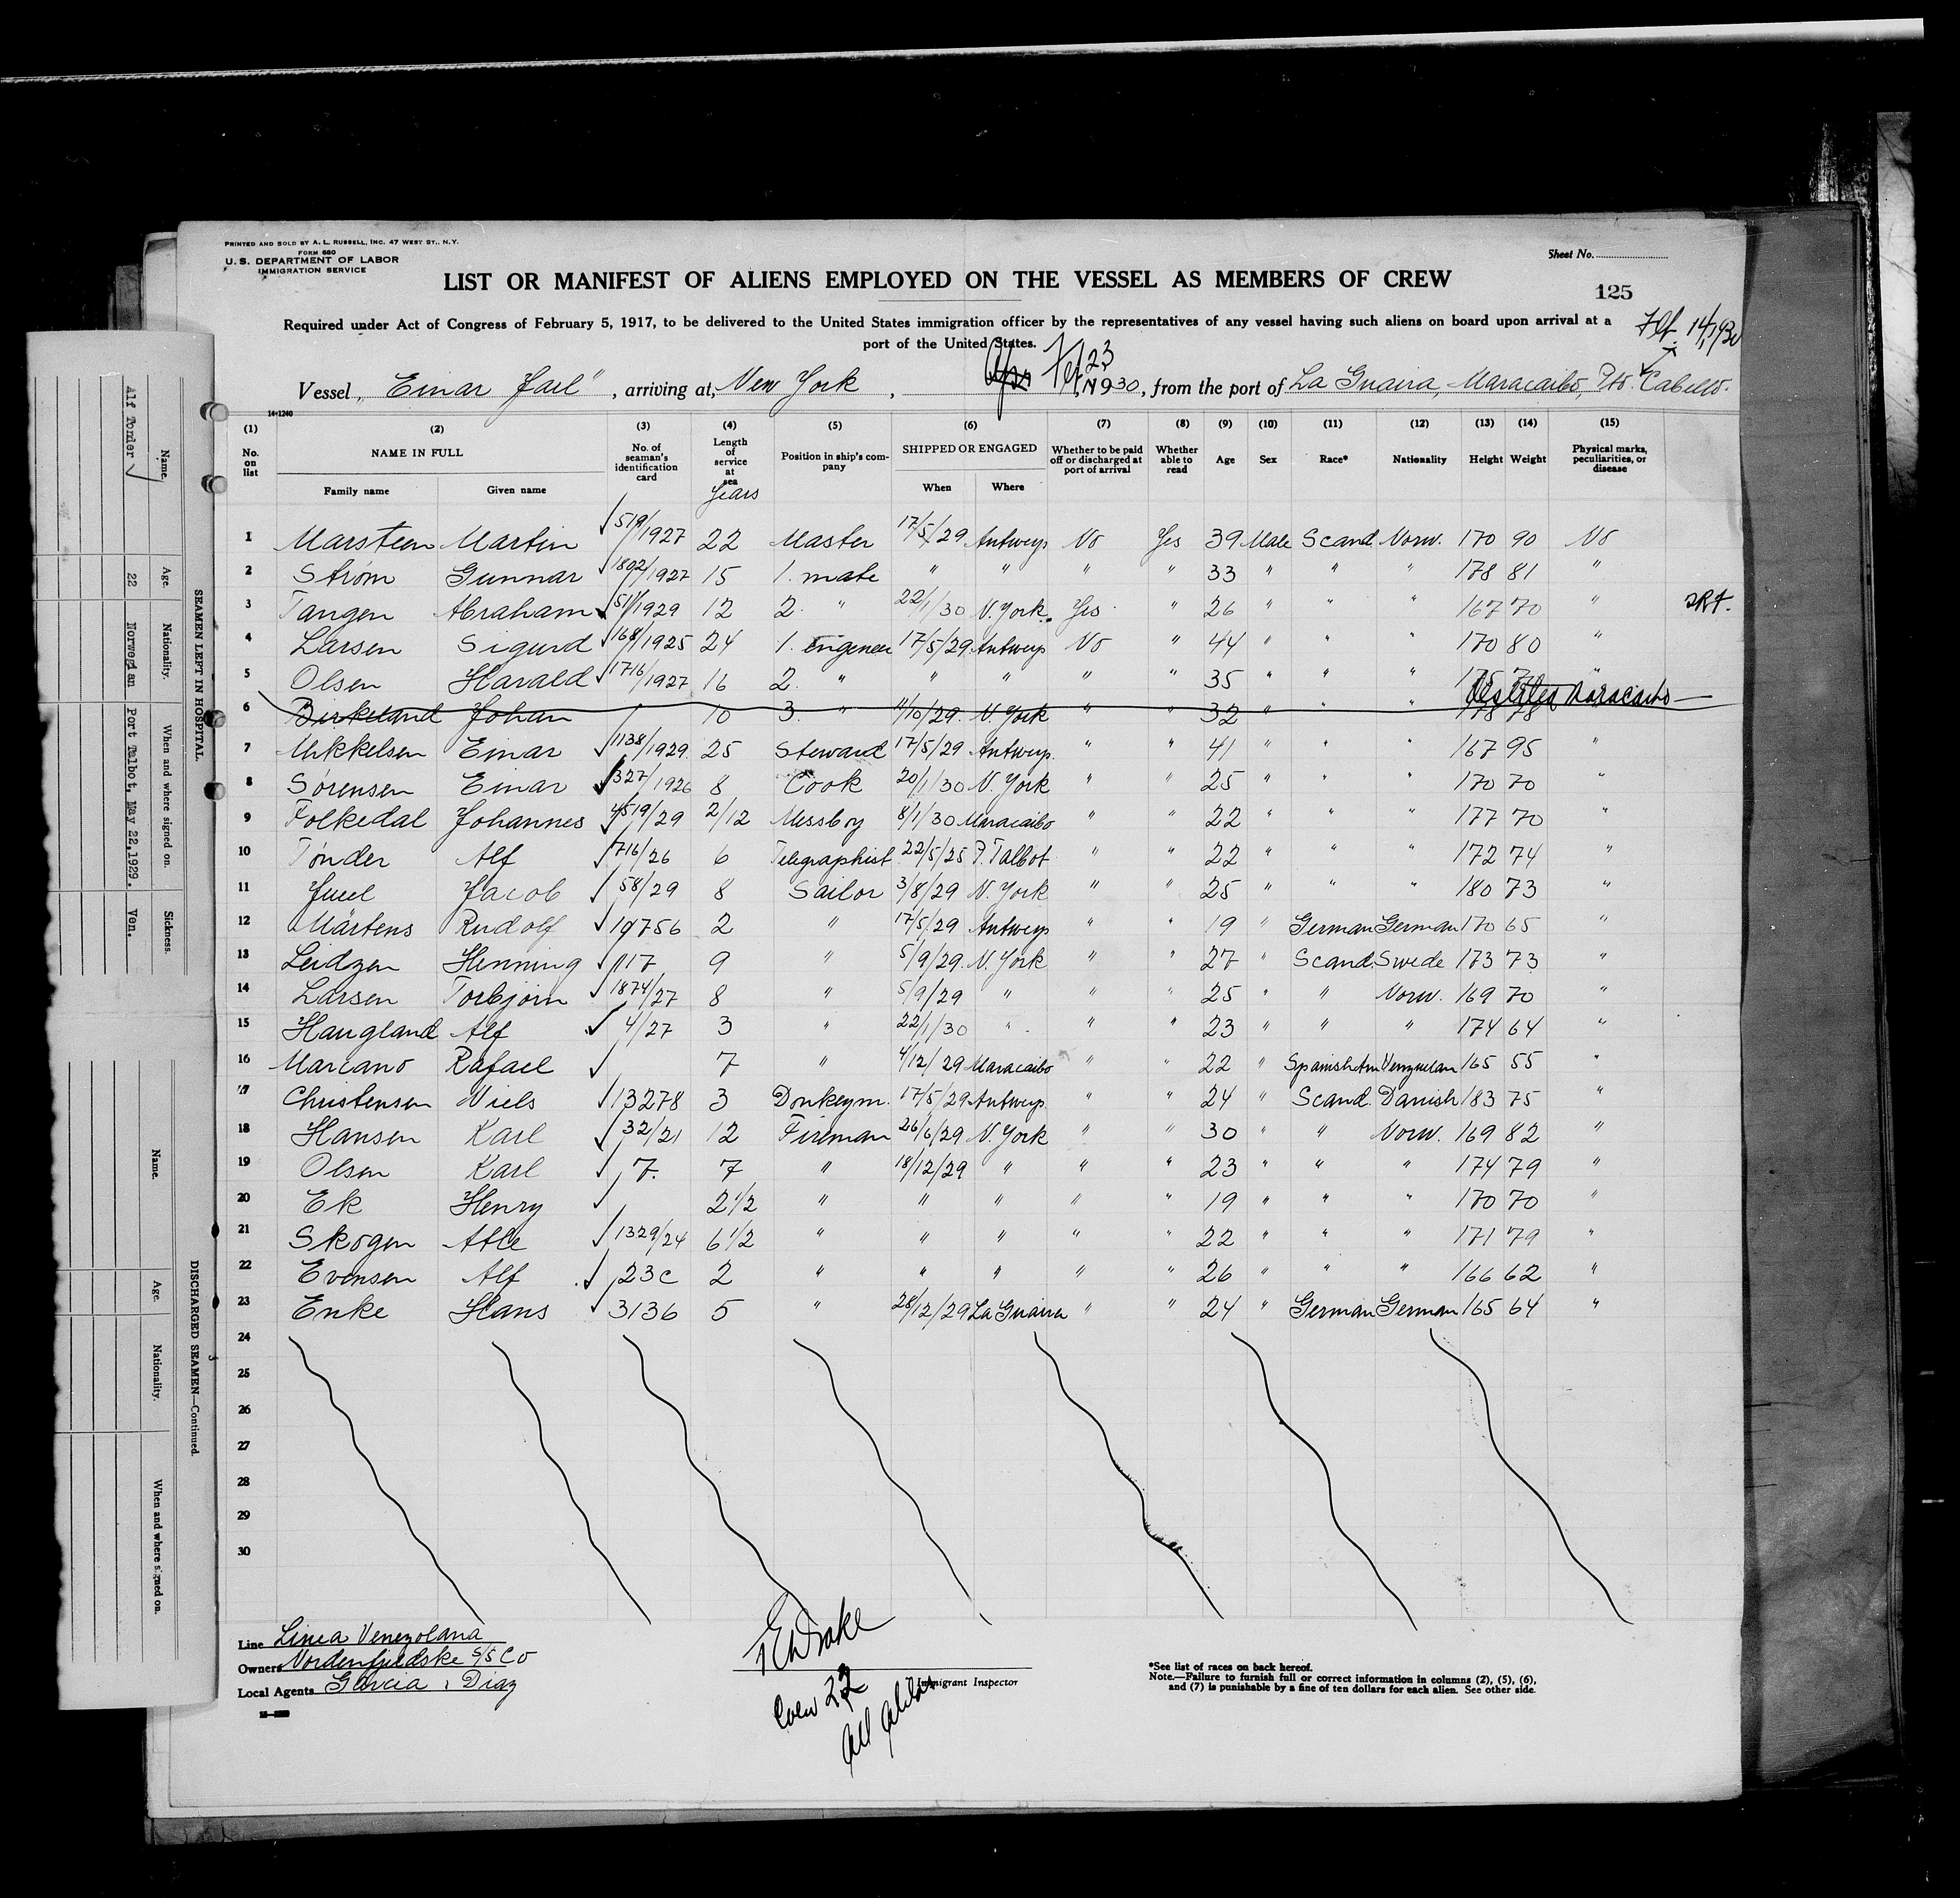 PRINTED AND SOLD BY A. L. RUSSELL, INC. 47 WEST ST., N.Y.
FORM 680
U. S. DEPARTMENT OF LABOR
IMMIGRATION SERVICE
Sheet No.
LIST OR MANIFEST OF ALIENS EMPLOYED ON THE VESSEL AS MEMBERS OF CREW
125
Required under Act of Congress of February 5, 1917, to be delivered to the United States immigration officer by the representatives of any vessel having such aliens on board upon arrival at a
port of the United States.
Feb. 14, 1930
Vessel "Einar Jarl", arriving at New York, Feb 23, 1930, from the port of La Guaira, Maracaibo, Pto. Cabello.
14-1240
(1) (2) (3) (4) (5) (6) (7) (8) (9) (10) (11) (12) (13) (14) (15)
No. on list NAME IN FULL No. of seaman's identification card Length of service at sea Position in ship's company SHIPPED OR ENGAGED Whether to be paid off or discharged at port of arrival Whether able to read Age Sex Race* Nationality Height Weight Physical marks, peculiarities, or disease
Family name Given name Years When Where
1 Marsteen Martin 519/1927 22 Master 17/5/29 Antwerp No Yes 39 Male Scand. Norw. 170 90 No
2 Strøm Gunnar 1802/1927 15 1. mate " " " " 33 " " " 178 81 "
3 Tangen Abraham 511/1929 12 2. " 22/1/30 N. York. Yes " 26 " " " 167 70 "
4 Larsen Sigurd 168/1925 24 1. Engeneer 17/5/29 Antwerp No " 44 " " " 170 80 "
5 Olsen Harald 1716/1927 16 2. " " " " " 35 " " " 175 "
6 Birkeland Johan 10 3. " 11/10/29. N. York " " 32 " " " 178 78 Deserted Maracaibo
7 Mikkelsen Einar 1138/1929. 25 Steward 17/5/29 Antwerp. " " 41 " " " 167 95 "
8 Sørensen Einar 327/1926 8 Cook 20/1/30 N. York " " 25 " " " 170 70 "
9 Folkedal Johannes 4519/29 2/12 Messboy 8/1/30 Maracaibo " " 22 " " " 177 70 "
10 Tønder Alf 716/26 6 Telegraphist 22/5/25 P. Talbot " " 22 " " " 172 74 "
11 Juul Jacob 58/29 8 Sailor 3/8/29 N. York " " 25 " " " 180 73 "
12 Märtens Rudolf 19756 2 " 17/5/29 Antwerp " " 19 " German German 170 65 "
13 Leidzen Henning 117 9 " 5/9/29. N. York " " 27 " Scand. Swede 173 73 "
14 Larsen Torbjørn 1874/27 8 " 5/9/29 " " " 25 " " Norw. 169 70 "
15 Haugland Alf 4/27 3 " 22/1/30 " " " 23 " " " 174 64 "
16 Marcano Rafael 7 " 4/12/29 Maracaibo " " 22 " Spanish Am Venzuelan 165 55 "
17 Christensen Niels 13278 3 Donkeym. 17/5/29 Antwerp. " " 24 " Scand. Danish 183 75 "
18 Hansen Karl 32/21 12 Fireman 26/6/29 N. York " " 30 " " Norw. 169 82 "
19 Olsen Karl 7. 7 " 18/12/29 " " " 23 " " " 174 79 "
20 Ek Henry 2 1/2 " " " " " 19 " " " 170 70 "
21 Skogen Atle 1329/24 6 1/2 " " " " " 22 " " " 171 79 "
22 Evensen Alf 23c 2 " " " " " 26 " " " 166 62 "
23 Enke Hans 3136 5 " 28/12/29 La Guaira " " 24 " German German 165 64 "
24
25
26
27
28
29
30
Line Linea Venezolana
Owners Nordenfjeldske S/S Co
Local Agents Garcia & Diaz
Immigrant Inspector
Crew 22
All Aliens
*See list of races on back hereof.
Note.—Failure to furnish full or correct information in columns (2), (5), (6),
and (7) is punishable by a fine of ten dollars for each alien. See other side.
SEAMEN LEFT IN HOSPITAL
Name. Age. Nationality. When and where signed on. Sickness.
Alf Tonder 22 Norwegian Port Talbot, May 22, 1929. Ven.
DISCHARGED SEAMEN—Continued.
Name. Age. Nationality. When and where signed on.